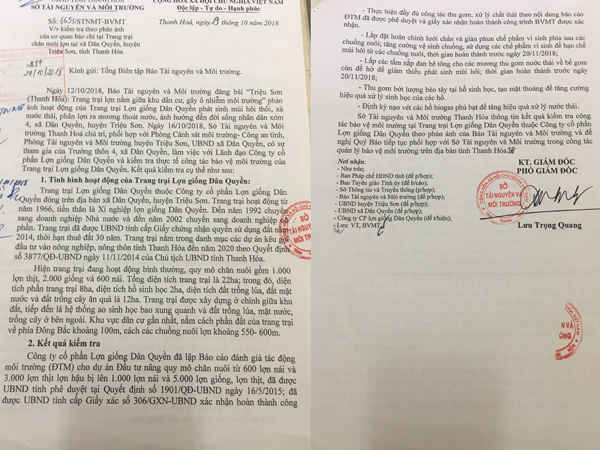 SỞ TÀI NGUYÊN VÀ MÔI TRƯỜNG
CỘNG HÒA XÃ HỘI CHỦ NGHĨA VIỆT NAM
Độc lập - Tự do - Hạnh phúc
Số: 6651/STNMT-BVMT
Thanh Hoá, ngày 19 tháng 10 năm 2018
V/v kiểm tra theo phản ánh
của cơ quan báo chí tại Trang trại
chăn nuôi lợn tại xã Dân Quyền, huyện
Triệu Sơn, tỉnh Thanh Hoá.
Kính gửi: Tổng Biên tập Báo Tài nguyên và Môi trường.
Ngày 12/10/2018, Báo Tài nguyên và Môi trường đăng bài "Triệu Sơn
(Thanh Hóa): Trang trại lợn nằm giữa khu dân cư, gây ô nhiễm môi trường" phản
ánh hoạt động của Trang trại Lợn giống Dân Quyền phát sinh mùi hôi thối, xả
nước thải, phân lợn ra mương thoát nước, ảnh hưởng đến đời sống nhân dân xóm
4, xã Dân Quyền, huyện Triệu Sơn. Ngày 16/10/2018, Sở Tài nguyên và Môi
trường Thanh Hoá chủ trì, phối hợp với Phòng Cảnh sát môi trường- Công an tỉnh,
Phòng Tài nguyên và Môi trường huyện Triệu Sơn, UBND xã Dân Quyền, có sự
tham gia của Trưởng thôn 4, xã Dân Quyền, làm việc với Lãnh đạo Công ty cổ
phần Lợn giống Dân Quyền và kiểm tra thực tế công tác bảo vệ môi trường của
Trang trại Lợn giống Dân Quyền. Kết quả kiểm tra cụ thể như sau:
1. Tình hình hoạt động của Trang trại Lợn giống Dân Quyền:
Trang trại Lợn giống Dân Quyền thuộc Công ty cổ phần Lợn giống Dân
Quyền đóng trên địa bàn xã Dân Quyền, huyện Triệu Sơn. Trang trại hoạt động từ
năm 1966, tiền thân là Xí nghiệp lợn giống Dân Quyền. Đến năm 1992 chuyển
sang doanh nghiệp Nhà nước và đến năm 2002 chuyển sang doanh nghiệp cổ
phần. Trang trại đã được UBND tỉnh cấp Giấy chứng nhận quyền sử dụng đất năm
2014, thời hạn thuê đất 30 năm. Trang trại nằm trong danh mục các dự án kêu gọi
đầu tư vào nông nghiệp, nông thôn tỉnh Thanh Hóa đến năm 2020 theo Quyết định
số 3877/QĐ-UBND ngày 11/11/2014 của Chủ tịch UBND tỉnh Thanh Hóa.
Hiện trang trại đang hoạt động bình thường, quy mô chăn nuôi gồm 1.000
lợn thịt, 2.000 giống và 600 nái. Tổng diện tích trang trại là 22ha; trong đó, diện
tích phần diện trang trại 8ha, diện tích hồ sinh học 2ha, diện tích đất trồng lúa, đất mặt
nước và đất trồng cây ăn quả là 12ha. Trang trại được xây dựng ở chính giữa khu
đất, tiếp đến là hệ thống ao sinh học bao xung quanh và đất trồng lúa, mặt nước,
trồng cây ở bên ngoài. Khu vực dân cư gần nhất, nằm cách phần đất của trang trại
về phía Đông Bắc khoảng 100m, cách các chuồng nuôi lợn khoảng 550- 600m.
2. Kết quả kiểm tra
Công ty cổ phần Lợn giống Dân Quyền đã lập Báo cáo đánh giá tác động
môi trường (ĐTM) cho dự án Đầu tư nâng quy mô chăn nuôi từ 600 lợn nái và
3.000 lợn thịt lợn hậu bị lên 1.000 lợn nái và 5.000 lợn giống, lợn thịt, đã được
UBND tỉnh phê duyệt tại Quyết định số 1901/QĐ-UBND ngày 16/5/2015; đã
được UBND tỉnh cấp Giấy xác số 306/GXN-UBND xác nhận hoàn thành công
- Thực hiện đầy đủ công tác thu gom, xử lý chất thải theo nội dung báo cáo
ĐTM đã được phê duyệt và giấy xác nhận hoàn thành công trình BVMT được xác
nhận.
- Lắp đặt hoàn chỉnh lưới chắn và giàn phun chế phẩm vi sinh phía sau các
chuồng nuôi; tăng cường vệ sinh chuồng, sử dụng các chế phẩm vi sinh để hạn chế
mùi hôi từ các chuồng nuôi, thời gian hoàn thành trước ngày 20/11/2018;
- Lắp các tấm nắp đan bê tông cho các mương thu gom nước thải về bể gom
còn để hở để giảm thiểu phát sinh mùi hôi; thời gian hoàn thành trước ngày
20/11/2018;
- Thu gom bớt lượng bèo tây tại hồ sinh học, tạo mặt thoáng để tăng cường
hiệu quả xử lý sinh học của các hồ.
- Định kỳ nạo vét các hồ biogas phủ bạt để tăng hiệu quả xử lý nước thải.
Sở Tài nguyên và Môi trường Thanh Hóa thông tin kết quả kiểm tra công
tác bảo vệ môi trường tại Trang trại Lợn giống Dân Quyền thuộc Công ty cổ phần
Lợn giống Dân Quyền theo phản ánh của Báo Tài nguyên và Môi trường và đề
nghị Quý Báo tiếp tục phối hợp với Sở Tài nguyên và Môi trường trong công tác
quản lý bảo vệ môi trường trên địa bàn tỉnh Thanh Hóa./.
Nơi nhận:
- Như trên;
- Ban Pháp chế HĐND tỉnh (để p/hợp);
- Ban Tuyên giáo Tỉnh ủy (để b/cáo);
- Sở Thông tin và Truyền thông (để p/hợp);
- Báo Tài nguyên và Môi trường (để p/hợp);
- UBND huyện Triệu Sơn (để p/hợp);
- UBND xã Dân Quyền (để p/hợp);
- Công ty CP Lợn giống Dân Quyền (để t/hiện);
- Lưu: VT, BVMT
KT. GIÁM ĐỐC
PHÓ GIÁM ĐỐC
SỞ
TÀI NGUYÊN
VÀ
MÔI TRƯỜNG
Lưu Trọng Quang